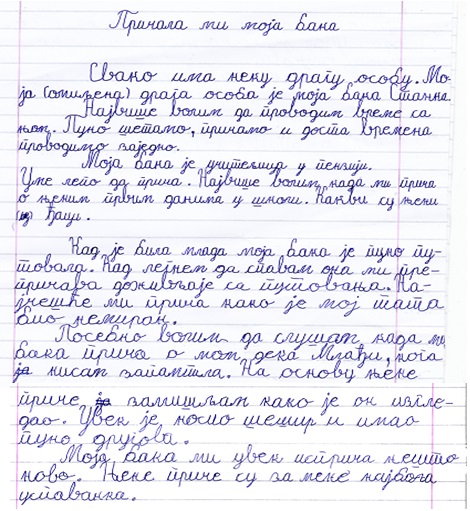 Причала ми моја бака
Свако има неку драгу особу. Мо-
ја (омиљена) драга особа је моја бака Станка.
Највише волим да проводим време са
њом. Пуно шетамо, причамо и доста времена
проводимо заједно.
Моја бака је учитељица у пензији.
Уме лепо да прича. Највише волим када ми прича
о њеним првим данима у школи. Какви су њени
ђаци.
Кад је била млада моја бака је пуно пу-
товала. Кад легнем да спавам она ми пре-
причава доживљаје са путовања. Нај-
чешће ми прича како је мој тата
био немиран.
Посебно волим да слушам када ми
бака прича о мом дека Млађи, кога
ја нисам запамтила. На основу њене
приче ја замишљам како је он изгле-
дао. Увек је носио шешир и имао
пуно другова.
Моја бака ми увек исприча нешто
ново. Њене приче су за мене најбоља
успаванка.